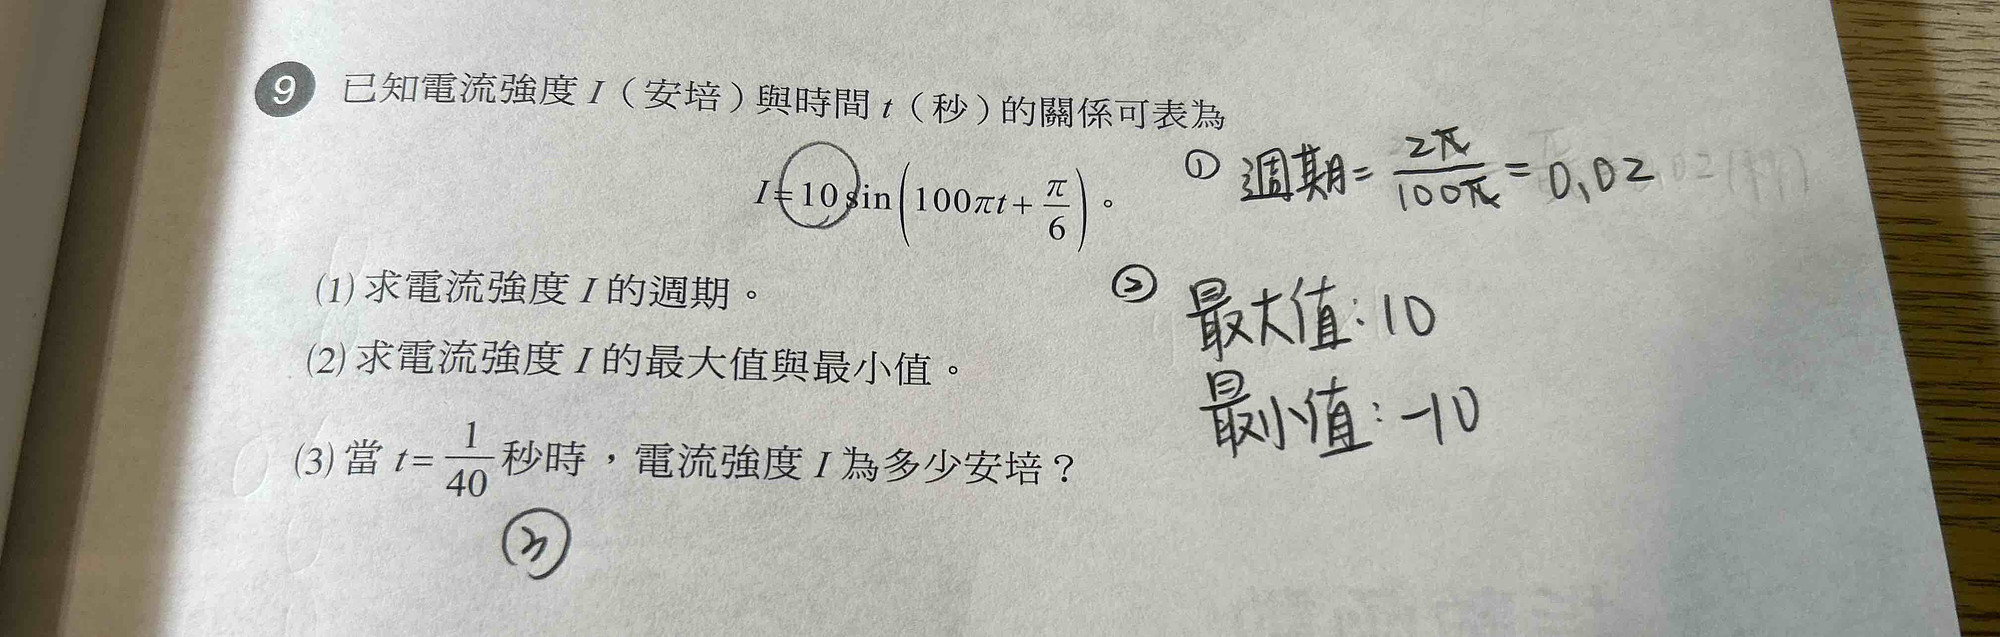 9 已知電流強度 I（安培）與時間 t（秒）的關係可表為
I=10 sin(100πt+π/6)。
(1) 求電流強度 I 的週期。
(2) 求電流強度 I 的最大值與最小值。
(3) 當 t=1/40 秒時，電流強度 I 為多少安培？
① 週期=2π/100π=0.02
② 最大值:10
最小值:-10
③